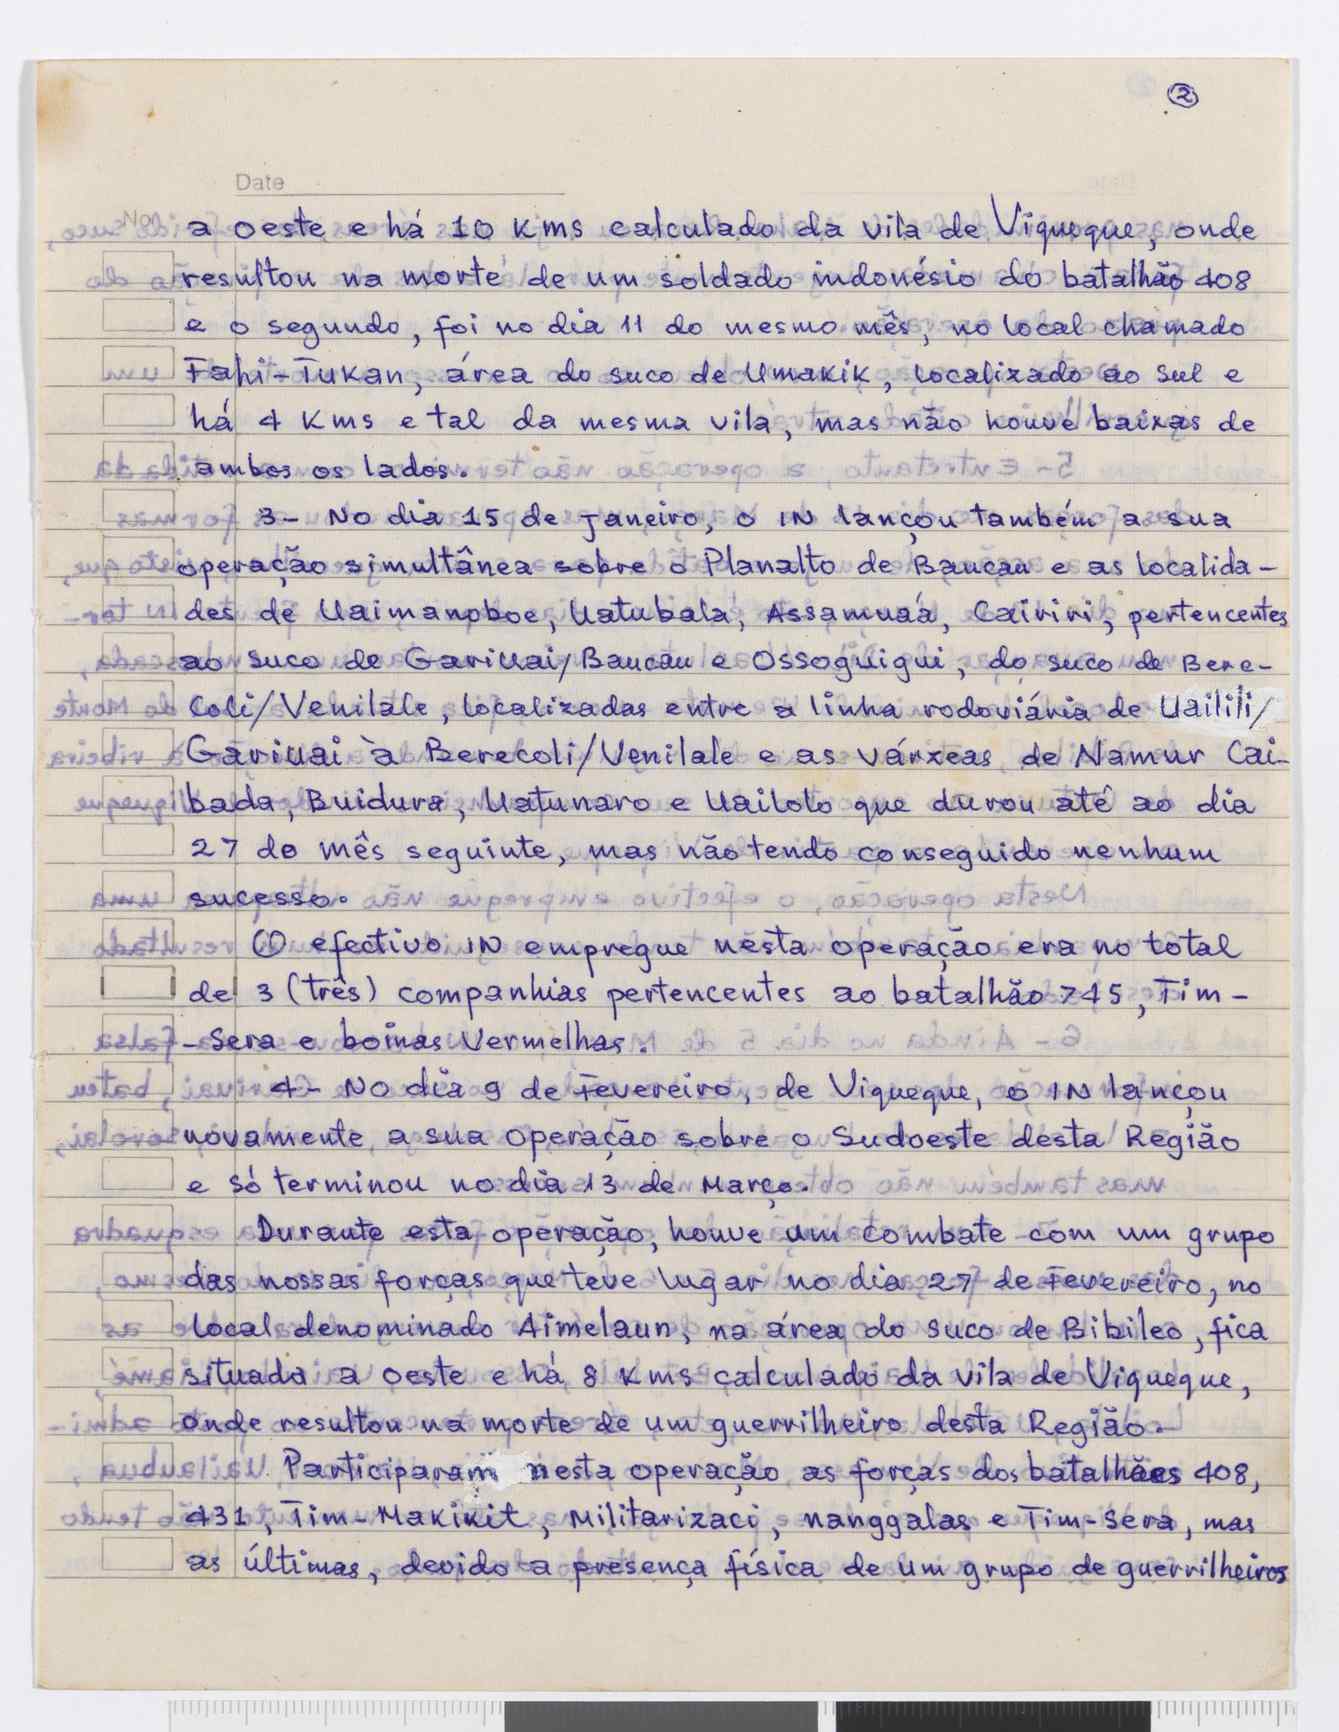 2
Date
a oeste e há 10 Kms calculado da vila de Viqueque, onde
resultou na morte de um soldado indonésio do batalhão 408
e o segundo, foi no dia 11 do mesmo mês, no local chamado
Fahi-Tukan, área do suco de Umakik, localizado ao sul e
há 4 Kms e tal da mesma vila, mas não houve baixas de
ambos os lados.
3- No dia 15 de Janeiro, o IN lançou também a sua
operação simultânea sobre o Planalto de Baucau e as localida-
des de Uaimanoboe, Uatubala, Assamuaá, Cairiri, pertencentes
ao suco de Gariuai/Baucau e Ossoguigui, do suco de Bere-
Coli/Venilale, localizadas entre a linha rodoviária de Uailili/
Gariuai à Berecoli/Venilale e as várzeas de Namur Cai-
bada, Buidura, Uatunaro e Uailoto que durou até ao dia
27 do mês seguinte, mas não tendo conseguido nenhum
sucesso.
O efectivo IN empregue nesta operação era no total
de 3 (três) companhias pertencentes ao batalhão 745, Tim-
-Sera e boinas Vermelhas.
4- No dia 9 de Fevereiro, de Viqueque, o IN lançou
novamente a sua operação sobre o Sudoeste desta Região
e só terminou no dia 13 de Março.
Durante esta operação, houve um combate com um grupo
das nossas forças que teve lugar no dia 27 de Fevereiro, no
local denominado Aimelaun, na área do suco de Bibileo, fica
situado a oeste e há 8 Kms calculado da vila de Viqueque,
onde resultou na morte de um guerrilheiro desta Região.
Participaram nesta operação as forças dos batalhões 408,
431, Tim-Makikit, Militarizaci, nanggalas e Tim-Sera, mas
as últimas, devido a presença física de um grupo de guerrilheiros